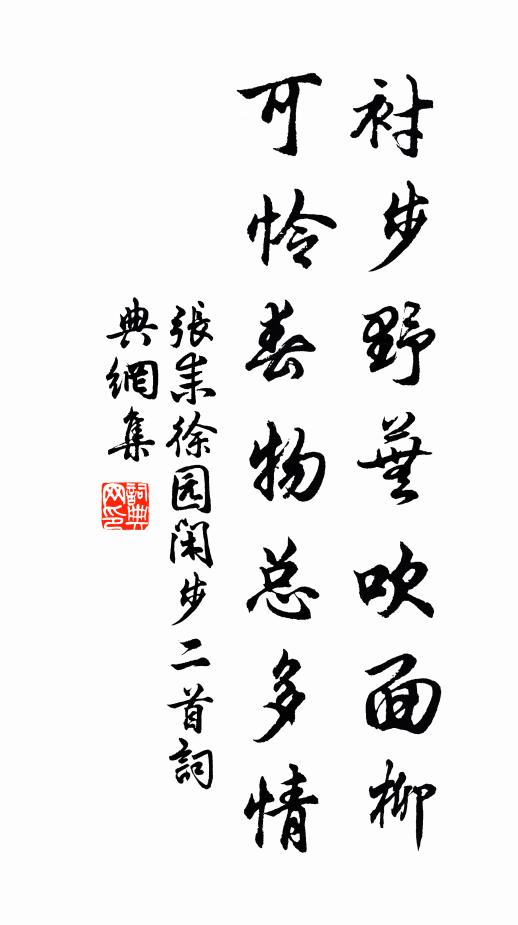 衬步野芜吹面柳
可怜春物总多情
張耒徐园閑步二首詞
典網集
詞典网印